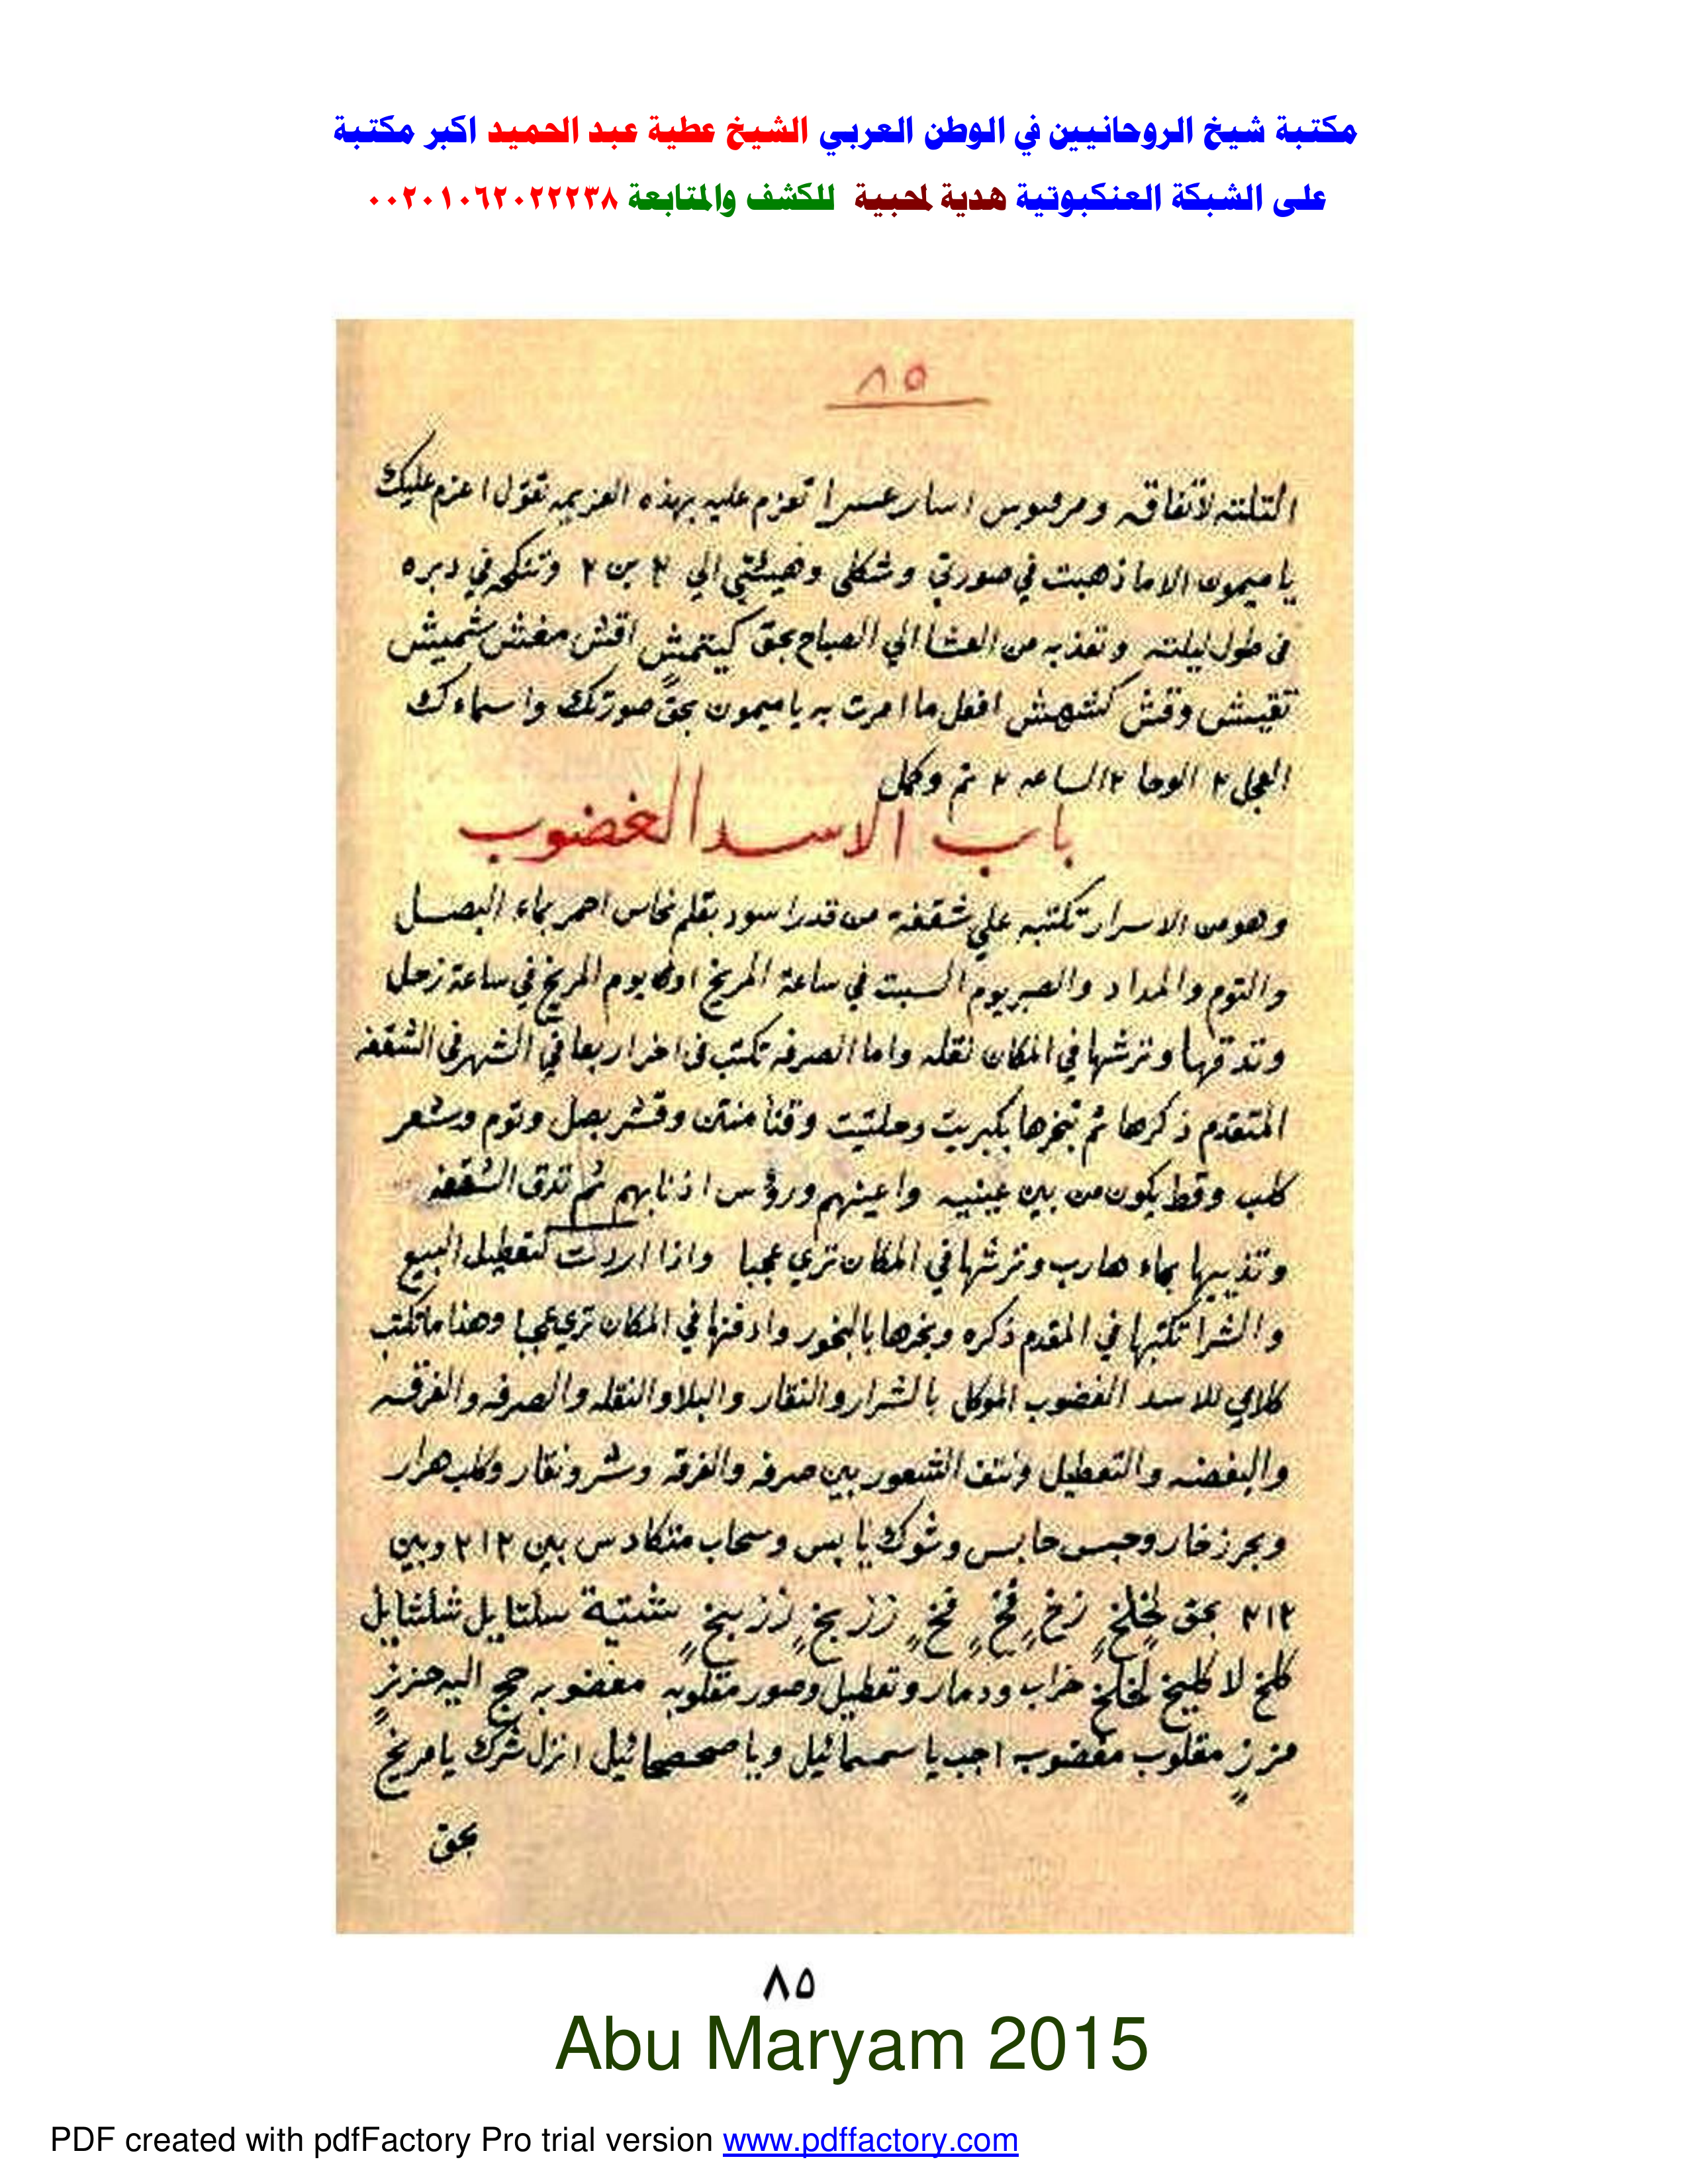 مكتبة شيخ الروحانيين في الوطن العربي الشيخ عطية عبد الحميد اكبر مكتبة
على الشبكة العنكبوتية هدية لمحبية للكشف والمتابعة ٠٠٢٠١٠٦٢٠٢٢٢٣٨
٨٥
التلته لاتفاق ومرقبوس اسار عسرا تعزم عليه بهذه العزيمه تقول اعزم عليك
يا ميمون الا ما ذهبت في صورتي وشكلى وهيئتي الي ٢ بن ٢ وتنكحه في دبره
فى طول ليلته وتعذبه من العشا الي الصباح بحق كيتمش اقش مغش شميش
تقيش وقش كشهش افعل ما امرت به يا ميمون بحق صورتك واسماءك
العجل ٢ الوحا ٢ الساعه ٢ تم وكمل
باب الاسد الغضوب
وهو من الاسرار تكتبه علي شقفة من قدر اسود بقلم نحاس احمر بماء البصل
والتوم والمداد والصبر يوم السبت في ساعة المريخ او يوم المريخ في ساعة زحل
وتدقها وترشها في المكان نقله واما الصرفه تكتب فى اخر اربعا في الشهر فى الشقفه
المتقدم ذكرها ثم تبخرها بكبريت وحلتيت وقنا منتن وقشر بصل وتوم وشعر
كلب وقط يكون من بين عينيه واعينهم ورؤس اذنابهم ثم تدق الشقفه
وتذيبها بماء هارب وترشها في المكان تري عجبا واذا اردت لتعطيل البيع
والشرا تكتبها في المقدم ذكره وبخرها بالبخور وادفنها في المكان تري عجبا وهذا ما تكتب
كلامي للاسد الغضوب الموكل بالشرار والنقار والبلا والنقله والصرفه والفرقه
والبغضه والتعطيل ونتف الشعور بين صرفه والفرقه وشر ونقار وكلب هرار
وبحر زخار وحبس حابس وشوك يابس وسحاب متكادس بين ٢١٢ وبين
٢١٢ بحق لخلخ زخ فخ فخ زز بخ زز بخ شتية سلتايل شلشايل
كلخ لا كليخ لخلخ خراب ودمار وتعطيل وصور مقلوبه مغضوبه حج اليه حزيز
مزز مقلوب مغضوب اجب يا سمسمائيل ويا صحصحائيل انزل شرك يا مريخ
بحق
٨٥
Abu Maryam 2015
PDF created with pdfFactory Pro trial version www.pdffactory.com